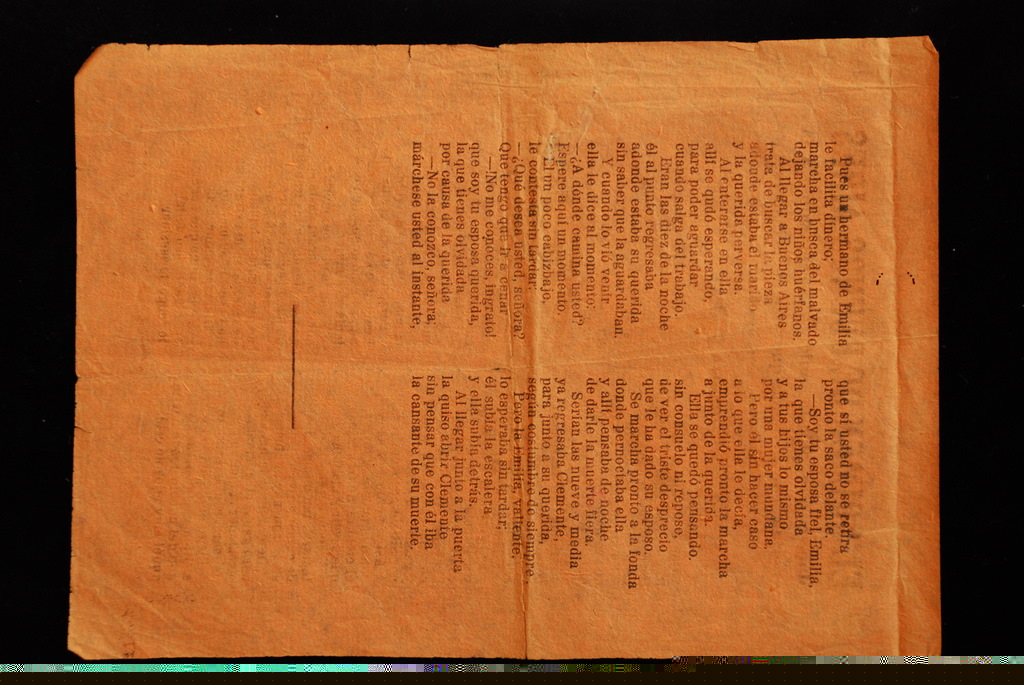 Pues un hermano de Emilia
le facilita dinero;
marcha en busca del malvado
dejando los niños huérfanos.
Al llegar a Buenos Aires
trata de buscar la pieza
adonde estaba el marido
y la querida perversa.
Al enterarse en ella
allí se qudó esperando,
para poder aguardar
cuando salga del trabajo.
Eran las diez de la noche
él al punto regresaba
adonde estaba su querida
sin saber que la aguardaban.
Y cuando lo vió venir
ella le dice al momento:
—¿A dónde camina usted?
Espere aquí un momento.
El un poco cabizbajo,
le contesta sin tardar:
—¿Qué desea usted, señora?
Que tengo que ir a cenar
—No me conoces, ingrato!
que soy tu esposa querida,
la que tienes olvidada
por causa de la querida
—No la conozco, señora;
márchese usted al instante,
que si usted no se retira
pronto la saco delante.
—Soy tu esposa fiel, Emilia,
la que tienes olvidada
y a tus hijos lo mismo
por una mujer mundana.
Pero él sin hacer caso
a lo que ella le decía,
emprendió pronto la marcha
a junto de la querida.
Ella se quedó pensando.
sin consuelo ni reposo,
de ver el triste desprecio
que le ha dado su esposo.
Se marcha pronto a la fonda
donde pernoctaba ella
y allí pensaba de noche
de darle la muerte fiera.
Serían las nueve y media
ya regresaba Clemente,
para junto a su querida,
según costumbre de siempre.
Pero la Emilia, valiente,
lo esperaba sin tardar;
él subía la escalera
y ella subía detrás.
Al llegar junto a la puerta
la quiso abrir Clemente
sin pensar que con él iba
la cansante de su muerte.